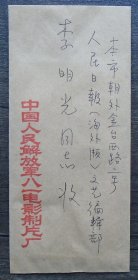 本市朝外金台西路二号
人民日报(海外版)文艺编辑部
李明光同志收
中国人民解放军八一电影制片厂